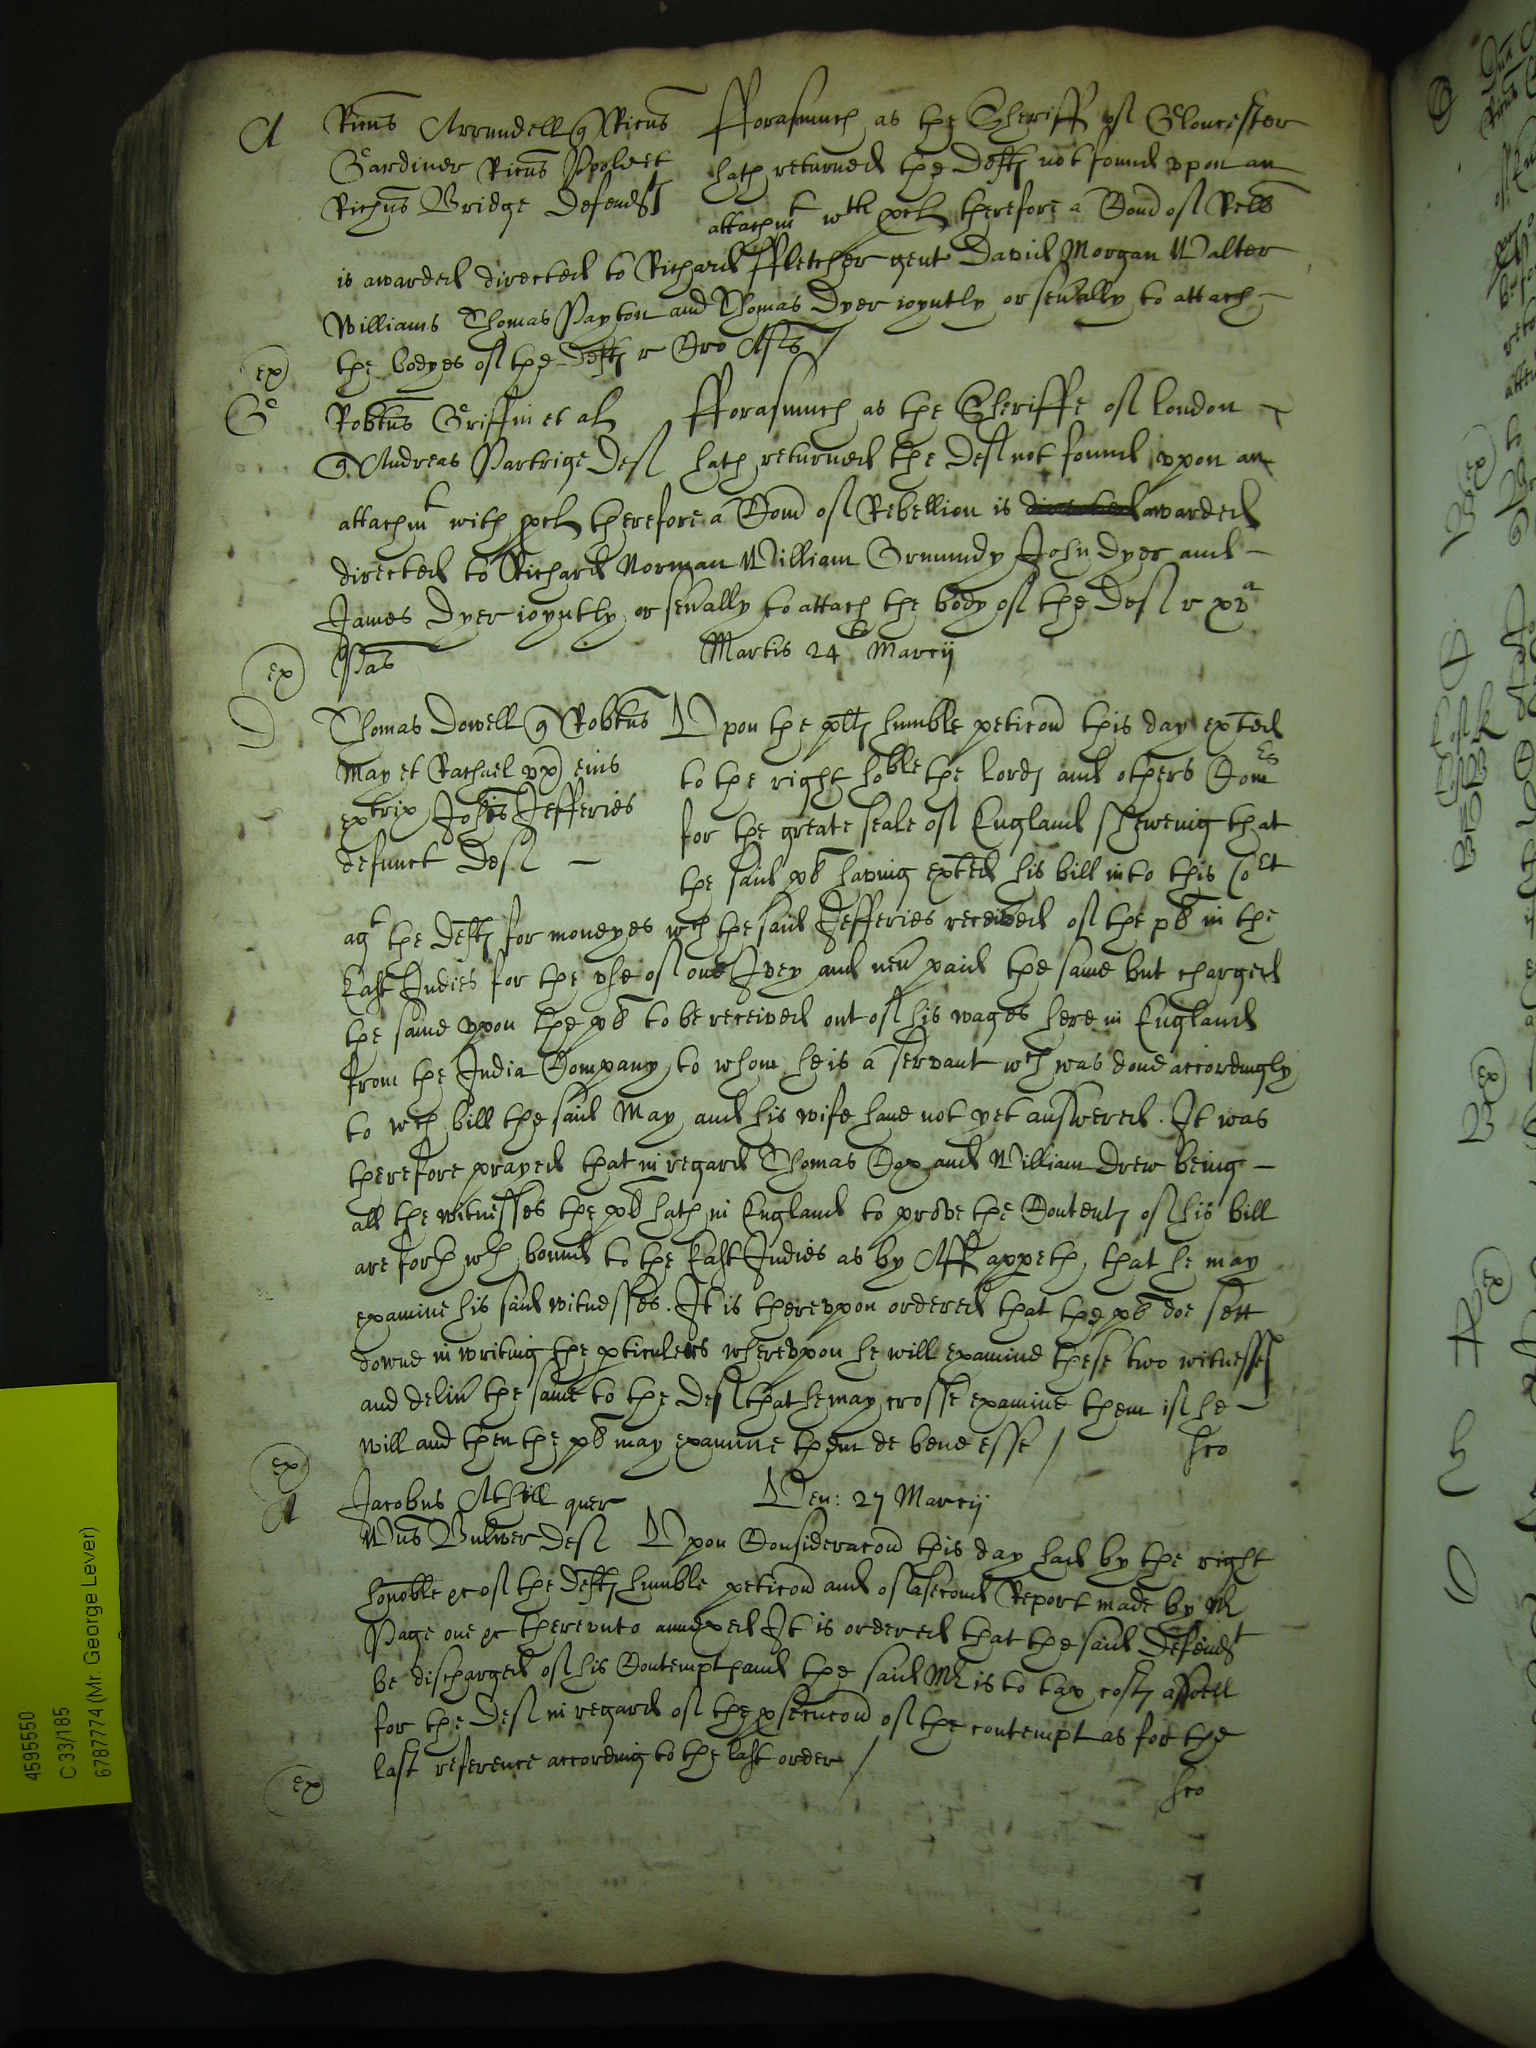 A Ricus Arrundell q Ricus fforasmuch as the Sheriff of Gloucester
Gardiner Ricus Poole et hath returned the Defts not found vpon an
Richus Bridge Defendts attachmt wth procl therefore a Com of Rebb
is awarded directed to Richard ffletcher gent David Morgan Walter
Williams Thomas Payton and Thomas Dyer ioyntly or seually to attach
the bodyes of the Defts r Cro Ass
ex
G Robtus Griffin et al fforasmuch as the Sheriffe of London
q Andreas Partrige Def hath returned the Def not found vpon an
attachmt with procl therefore a Com of Rebellion is directed awarded
directed to Richard Norman William Ormundy John Dyer and
James Dyer ioyntly or seually to attach the body of the Def r xva
Pas
ex
Martis 24th Marcij
D Thomas Dowell q Robtus Vpon the plts humble peticon this day exted
May et Rachael vx eius to the right hoble the lords and others Comrs
extrix Johis Jefferies for the greate seale of England shewing that
defunct Def the said plt having exted his bill into this Cort
agt the Defts for moneyes wch the said Jefferies received of the plt in the
East Indies for the vse of one Ivey and neu paid the same but charged
the same vpon the plt to be received out of his wages here in England
from the India Company to whom he is a servant wch was done accordingly
to wch bill the said May and his wife haue not yet answered. It was
therefore prayed that in regard Thomas Cox and William Drew being
all the witnesses the plt hath in England to prove the Contents of his bill
are forthwth bound to the East Indies as by Aff appeth, that he may
examine his said witnesses. It is therevpon ordered that the plt doe sett
downe in writing the pticulers wherevpon he will examine these two witnesses
and deliu the same to the Def that he may crosse examine them if he
will and then the plt may examine them de bene esse / hco
ex
Ven: 27 Marcij
A Jacobus Athill quer
Wus Bulwer Def Vpon Consideracon this day had by the right
honoble &c of the Defts humble peticon and of a second Report made by Mr
Page one &c therevnto annexed It is ordered that the said Defendt
be discharged of his Contempt and the said Mr is to tax costs aswell
for the Def in regard of the psecucon of the contempt as for the
last reference according to the last order / hco
ex
4595550
C 33/185
6787774 (Mr. George Lever)